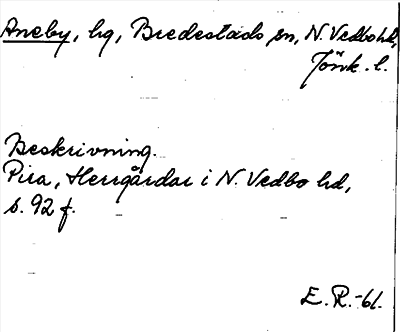 Aneby, hg, Bredestads sn, N. Vedbo hd,
Jönk. l.
Beskrivning.
Pira, Herrgårdar i N. Vedbo hd,
s. 92 f.
E. R. -61.